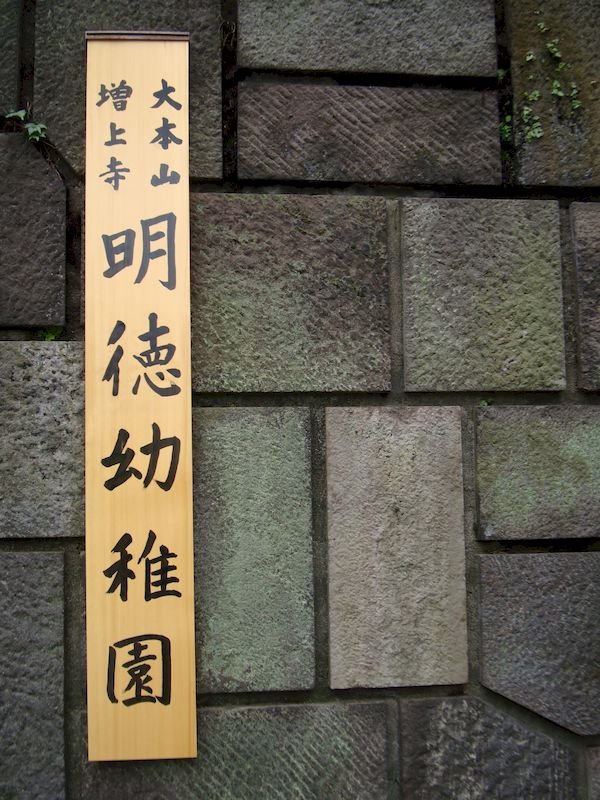 大本山
増上寺
明徳幼稚園